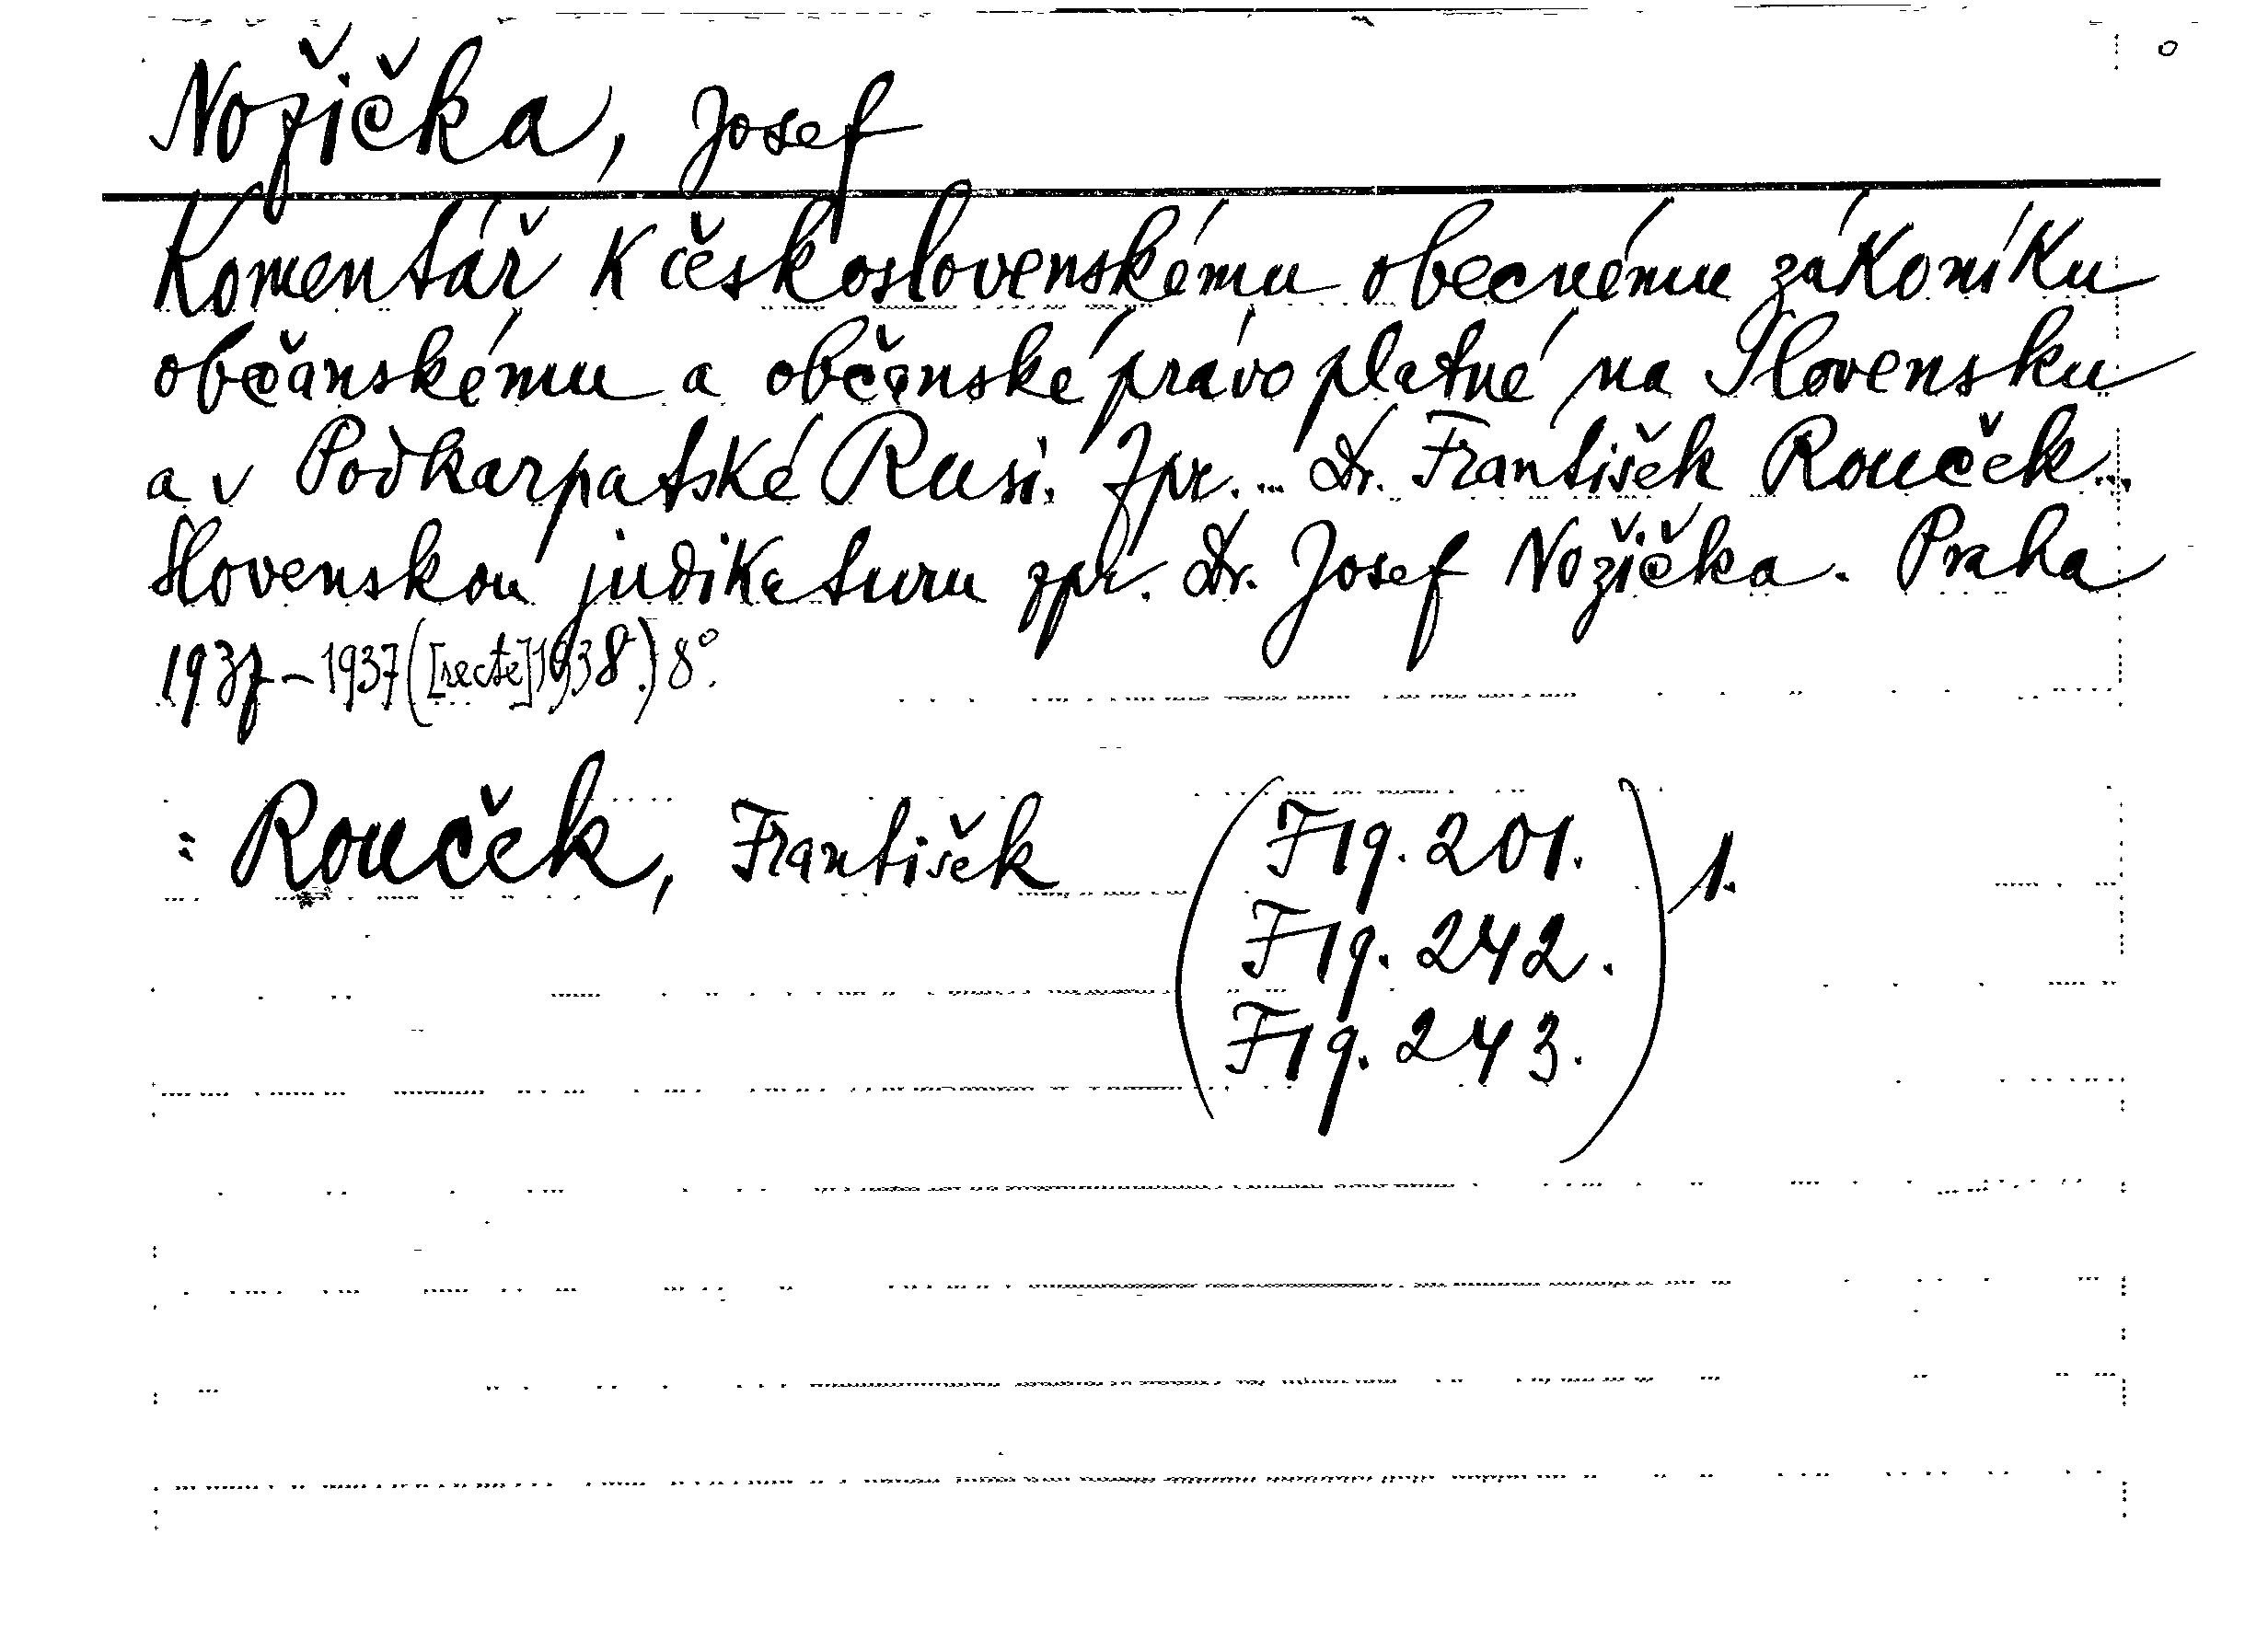 Nožička, Josef
Komentář k československému obecnému zákoníku
občanskému a občanské právo platné na Slovensku
a v Podkarpatské Rusi. Zpr. ... Dr. František Rouček...
Slovenskou judikaturu zpr. Dr. Josef Nožička. Praha
1937-1937([recte]1938.) 8°.
= Rouček, František
(F1q. 201.
F1q. 242.
F1q. 243.) 1.